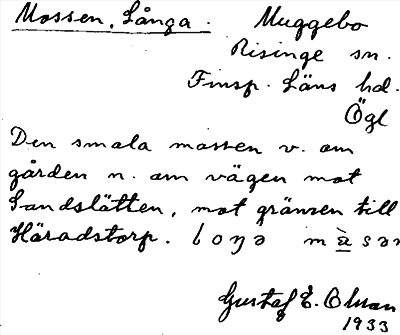 Mossen, Långa. Muggebo
Risinge sn.
Finsp. Läns hd.
Ögl
Den smala mossen v. om
gården n. om vägen mot
Sandslätten, mot gränsen till
Häradstorp.
Gustaf E. Olsson
1933